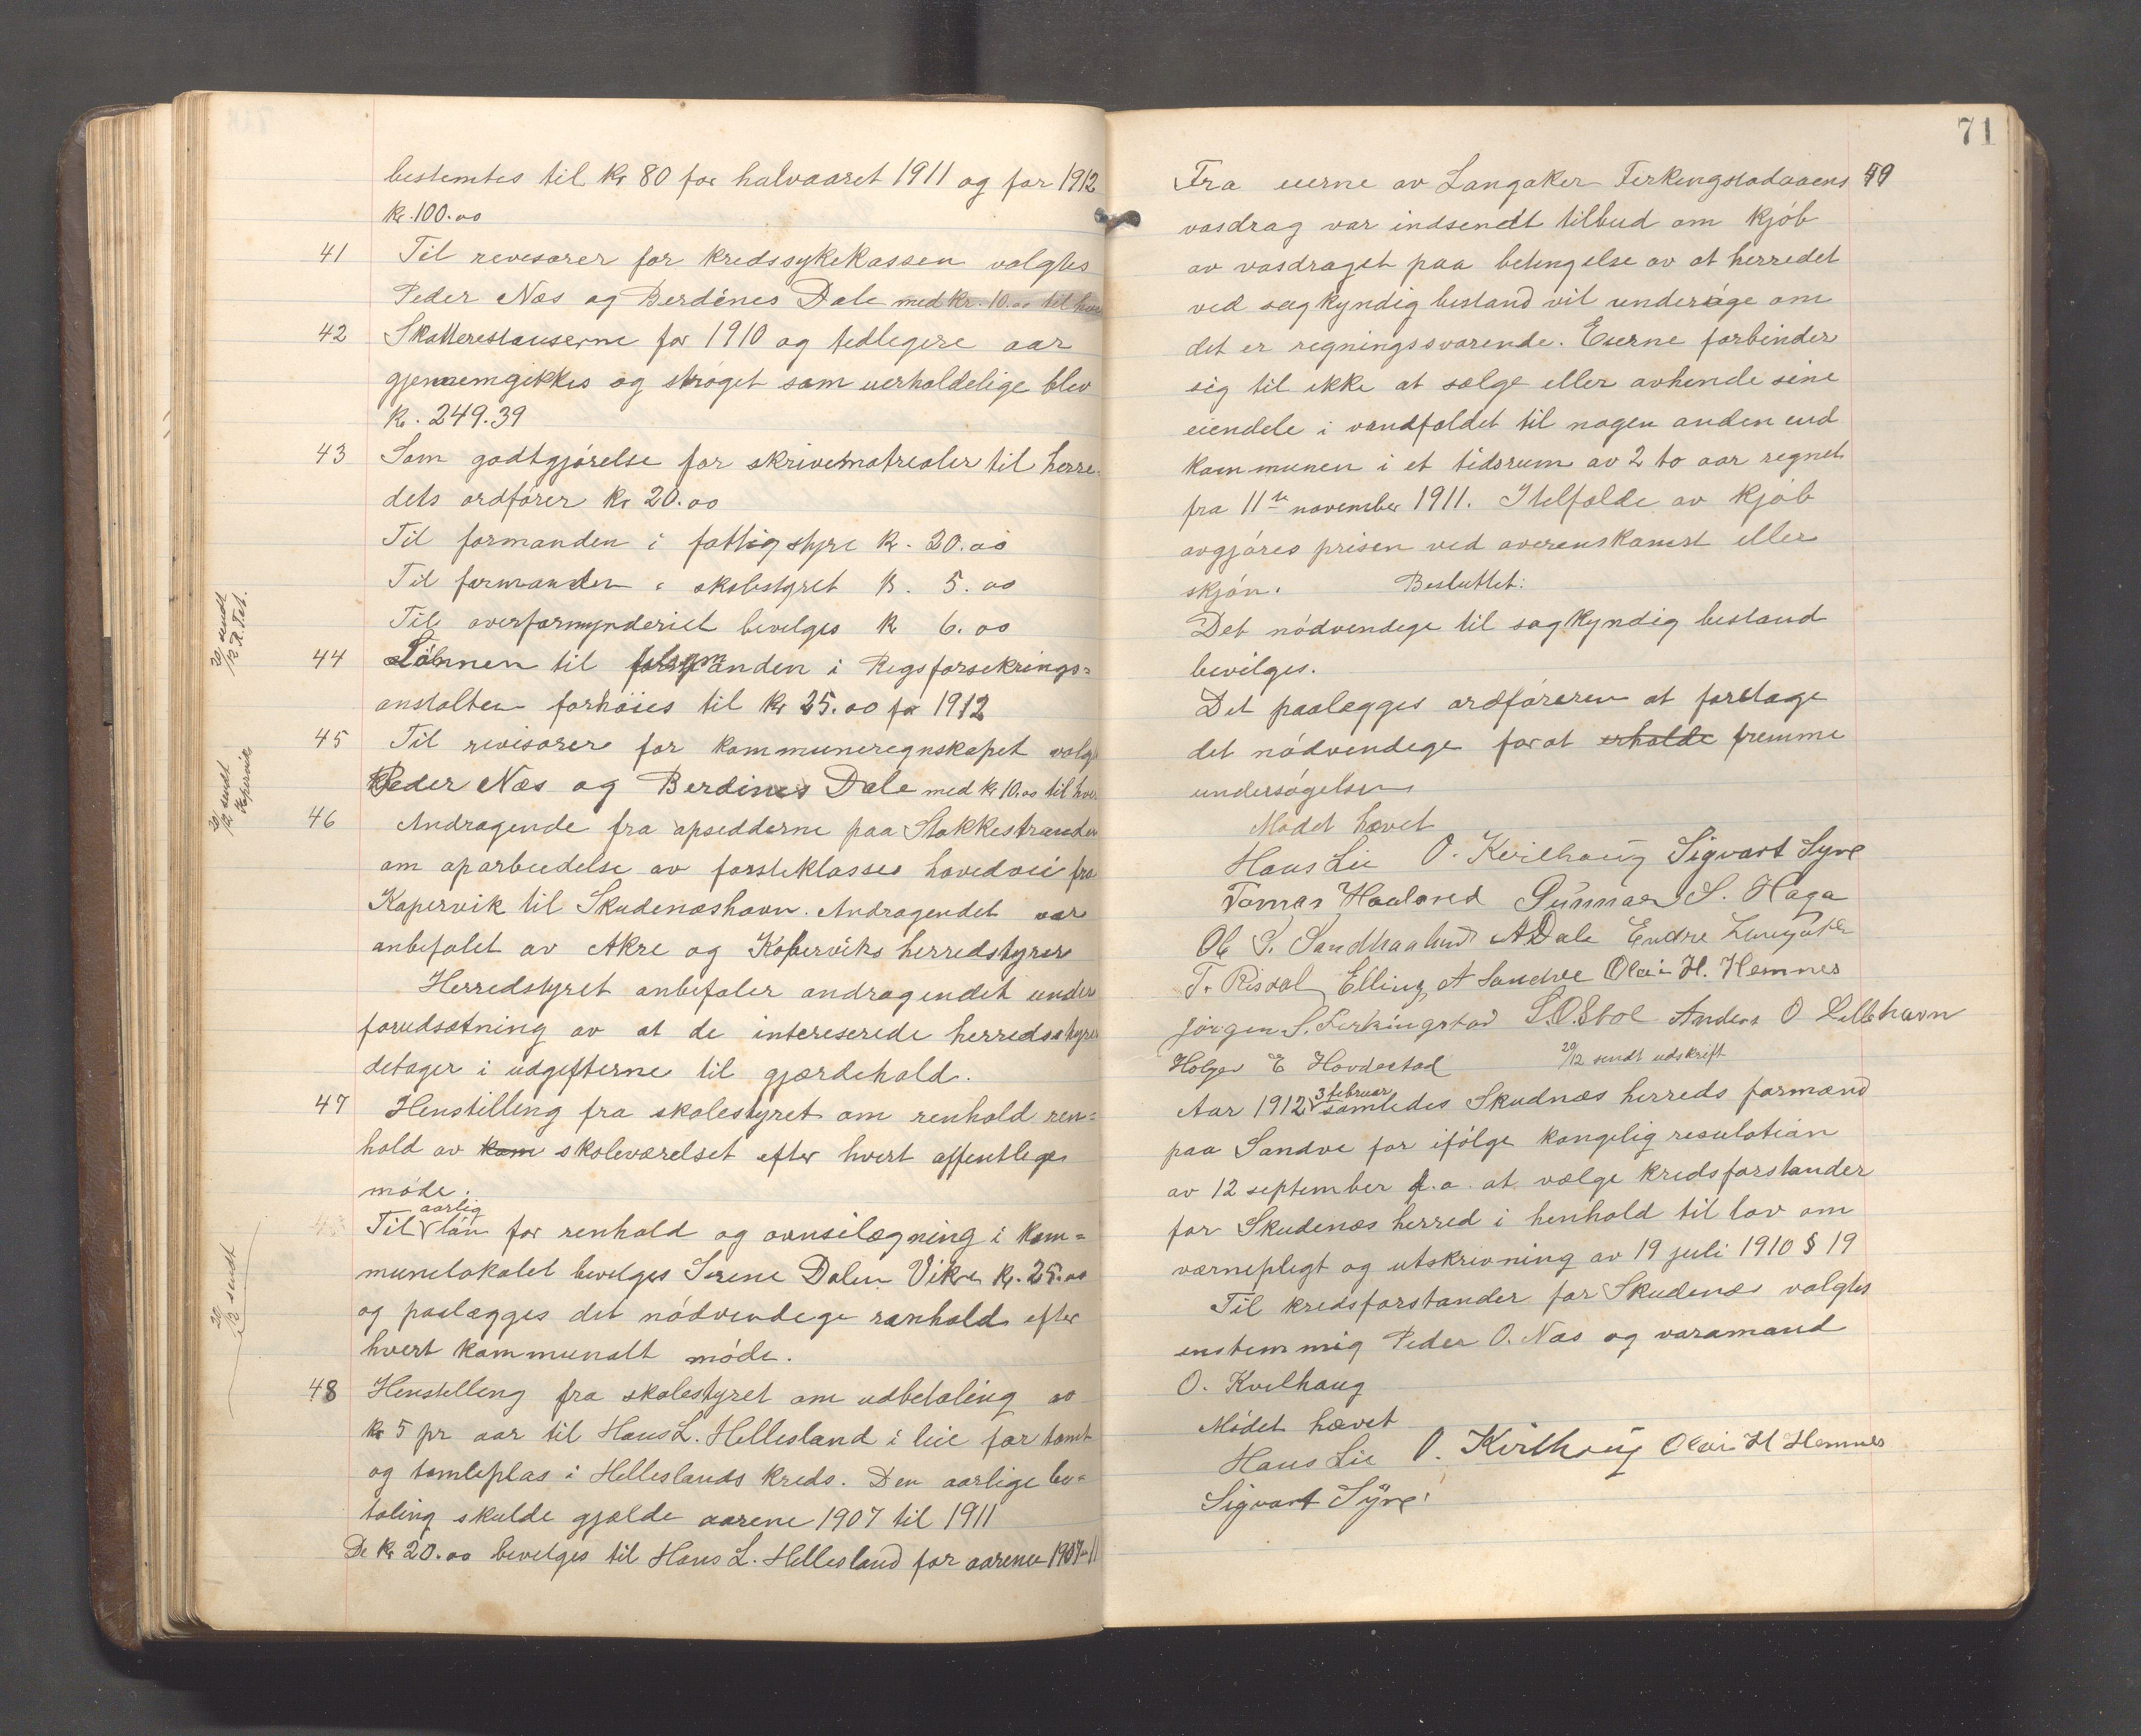 bestemtes til kr 80 for halvaaret 1911 og for 1912
kr. 100.00
41 Til revisorer for kredssykekassen valgtes
Peder Næs og Berdines Dale med kr. 10.00 til hver
42 Skatterestanserne for 1910 og tidligere aar
gjennemgikkes og strøget som uerholdelige blev
kr. 249.39
43 Som godtgjørelse for skrivematrealer til herre-
dets ordfører kr 20.00
Til formanden i fattigstyre kr. 20.00
Til formanden i skolestyret kr. 5.00
Til overformynderiet bevilges kr 6.00
20/12 sendt R. Tet.
44 Lønnen til anden i Rigsforsekrings=
anstalten forhøies til kr 25.00 for 1912
45 Til revisorer for kommuneregnskapet valgt
Peder Næs og Berdines Dale med kr 10.00 til hver
20/12 sendt Kopervik
46 Andragende fra opsidderne paa Stokkestranden
om oparbeidelse av førsteklasses hovedvei fra
Kopervik til Skudenæshavn. Andragendet var
anbefalet av Akre og Koperviks herredstyrer
Herredstyret anbefaler andragendet under
forudsætning av at de intereserede herredsstyrer
detager i udgifterne til gjærdehold.
47 Henstilling fra skolestyret om renhold ren=
hold av kom skoleværelset efter hvert offentlige
møde.
Til aarlig løn for renhold og ovnsilægning i kom=
munelokalet bevilges Serene Dalen Vikre kr. 25.00
og paalægges det nødvendige renhold efter
hvert kommunalt møde.
20/12 sendt
48 Henstilling fra skolestyret om udbetaling av
kr 5 pr aar til Hans L. Hellesland i leie for tomt
og tomteplas i Helleslands kreds. Den aarlige be=
taling skulde gjælde aarene 1907 til 1911
De kr 20.00 bevilges til Hans L. Hellesland for aarene 1907-11
71
Fra eierne av Langaker Ferkingstadaaens 49
vasdrag var indsendt tilbud om kjøb
av vasdraget paa betingelse av at herredet
ved sagkyndig bestand vil undersøge om
det er regningssvarende. Eierne forbinder
sig til ikke at sælge eller avhende sine
eiendele i vandfaldet til nogen anden end
kommunen i et tidsrum av 2 to aar regnet
fra 11te november 1911. Itelfælde av kjøb
avgjøres prisen ved overenskomst eller
skjøn. Besluttet:
Det nødvendige til sagkyndig bestand
bevilges.
Det paalægges ordføreren at foretage
det nødvendige for at erholde fremme
undersøgelsen
Mødet hævet
Hans Lie O. Kvilhaug Sigvart Syre
Tomas Hauland Gunnar S. Haga
Ole S. Sandhaaland A Dale Endre Langaker
T. Risdal Elling A Sandve Olai H. Hemnes
Jørgen S. Ferkingstad S.O. Stol Anders O Lillehavn
Holger E Hovdestad 20/12 sendt udskrift
Aar 1912 3 februar samledes Skudnæs herreds formænd
paa Sandve for ifølge kongelig resulotion
av 12 september f.a. at vælge kredsforstander
for Skudenæs herred i henhold til lov om
værnepligt og utskrivning av 19 juli 1910 § 19
Til kredsforstander for Skudenæs valgtes
enstemmig Peder O. Næs og varamand
O. Kvilhaug
Mødet hævet
Hans Lie O. Kvilhaug Olai H Hemnes
Sigvart Syre